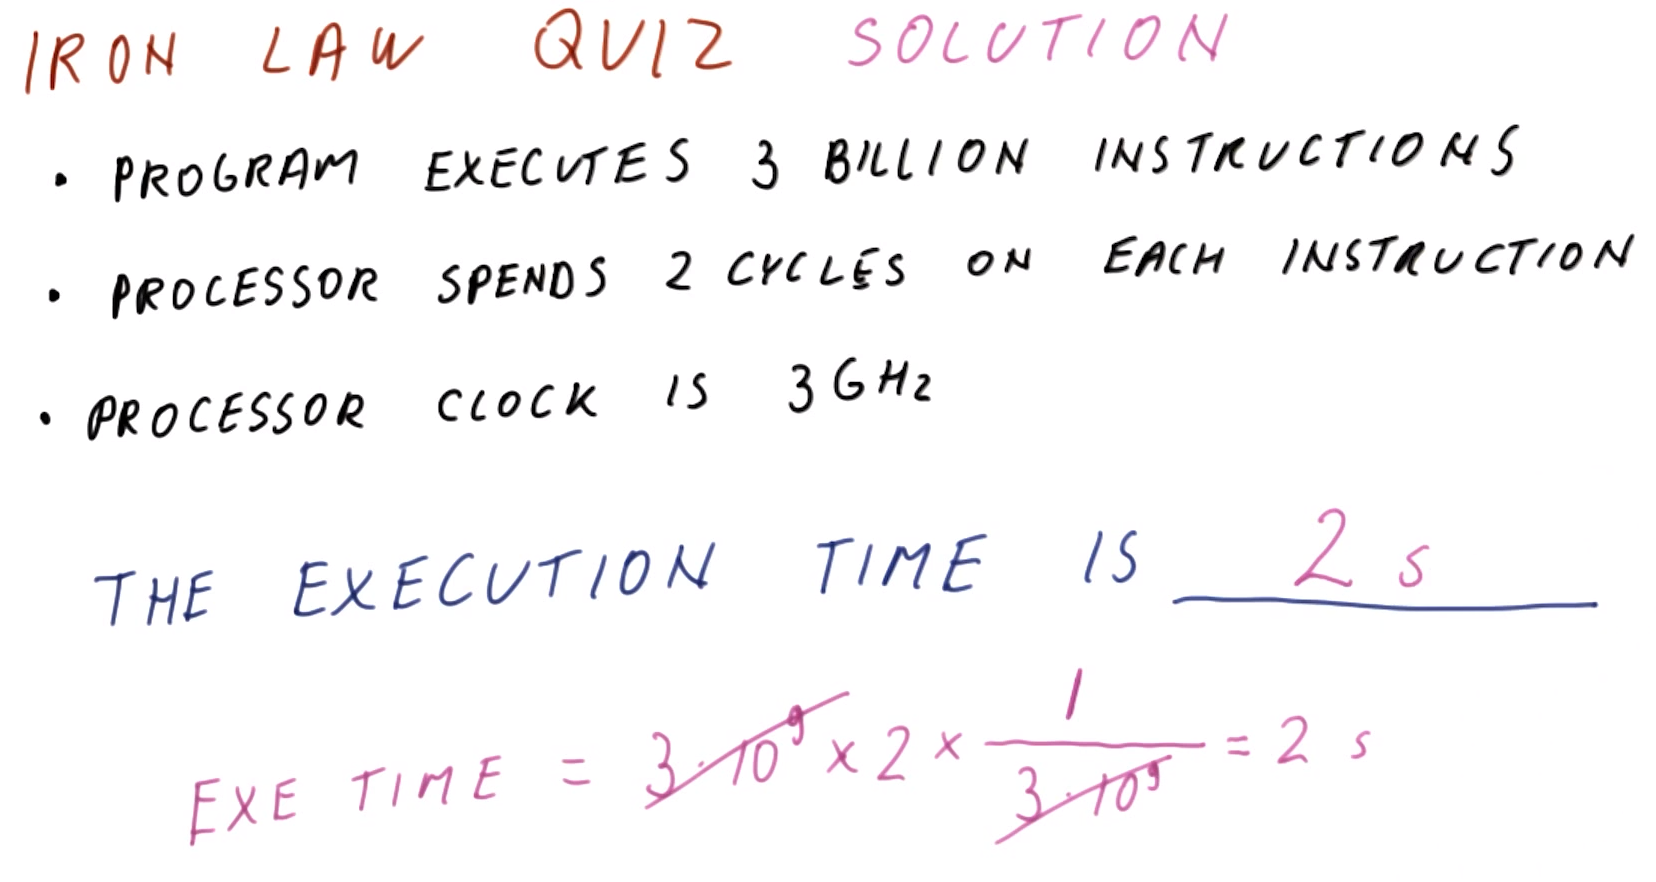 IRON LAW QUIZ SOLUTION
• PROGRAM EXECUTES 3 BILLION INSTRUCTIONS
• PROCESSOR SPENDS 2 CYCLES ON EACH INSTRUCTION
• PROCESSOR CLOCK IS 3 GHz
THE EXECUTION TIME IS 2 s
EXE TIME = 3·10⁹ × 2 × 1/(3·10⁹) = 2 s